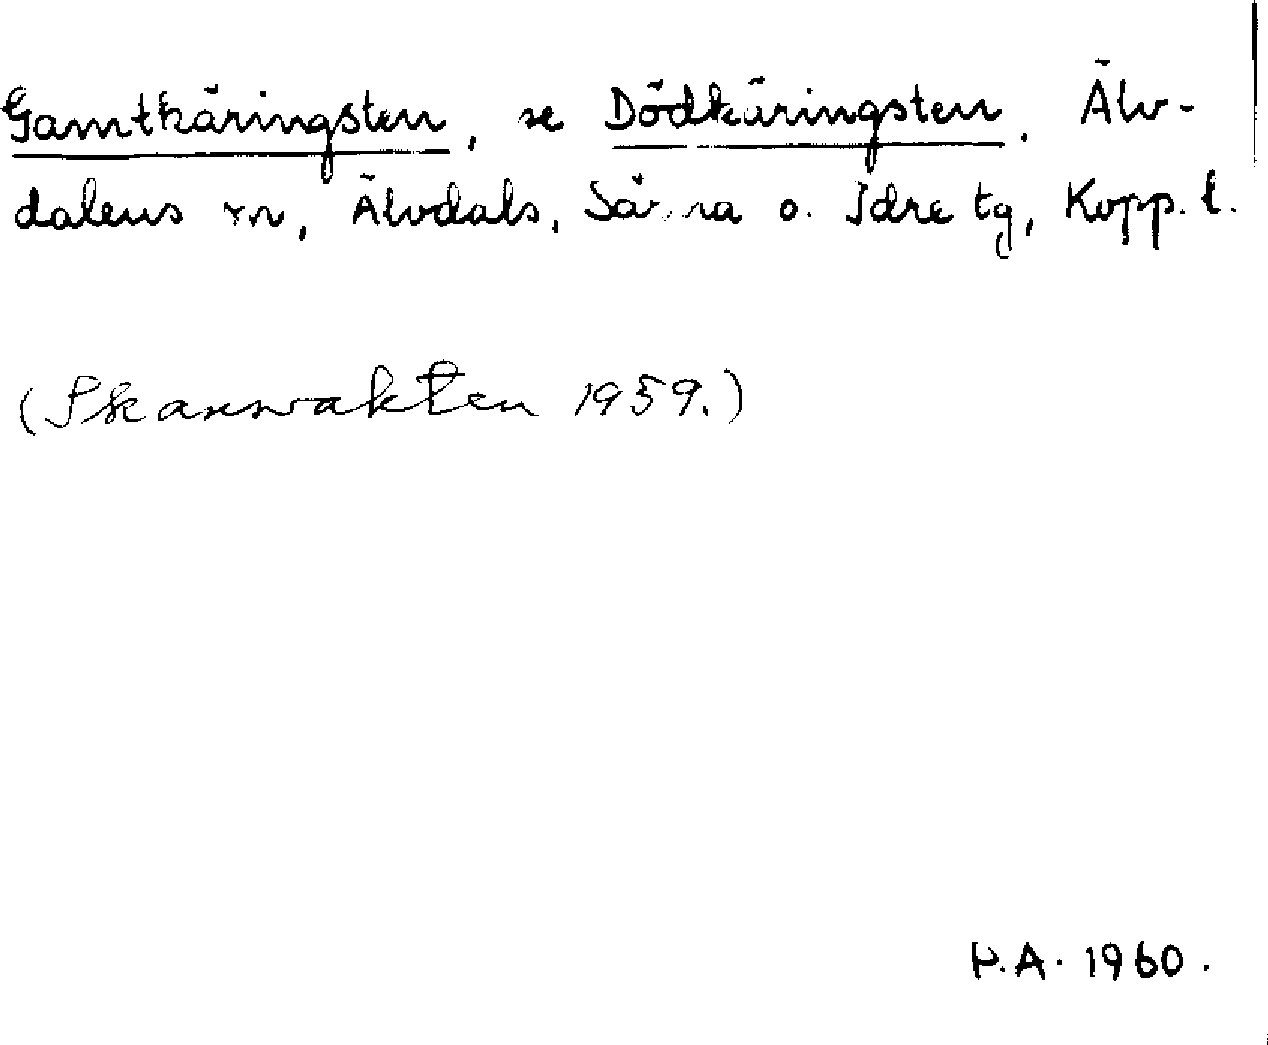 Gamtkäringsten, se Dödkäringsten. Älv-
dalens sn, Älvdals, Särna o. Idre tg, Kopp. l.
(Skansvakten 1959.)
P.A. 1960.